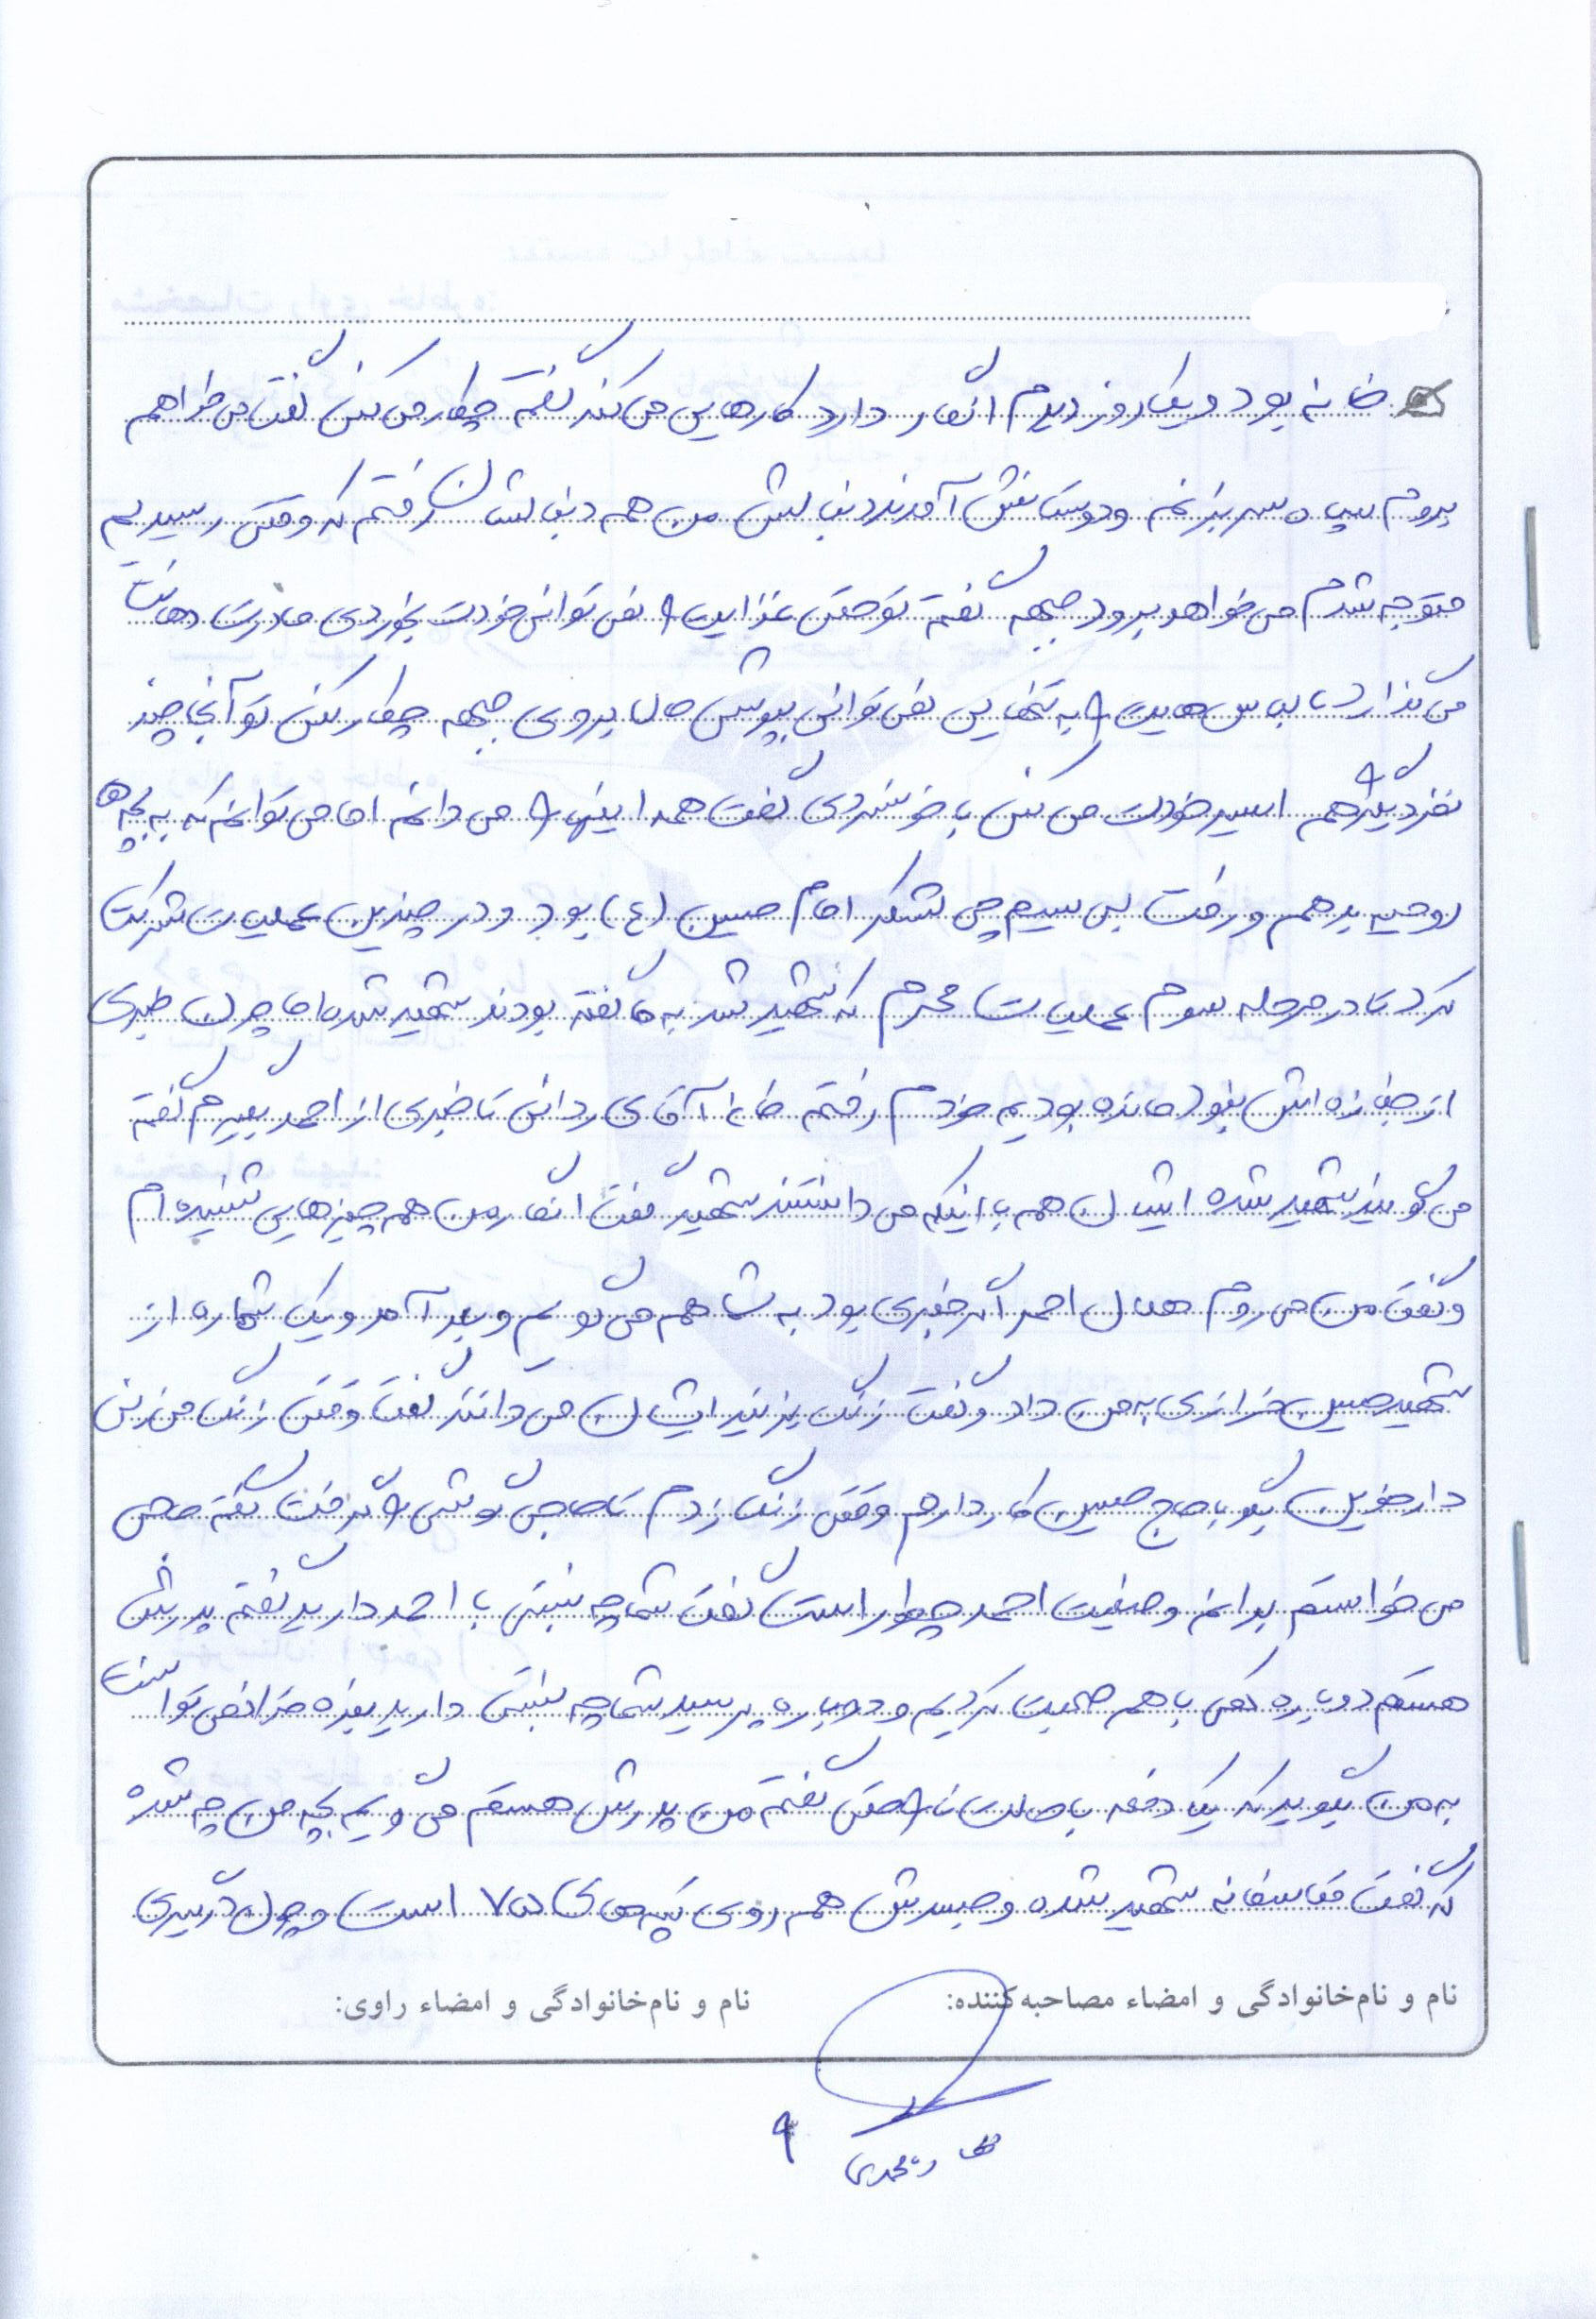 خانه بود و یک روز دیدم انگار دارد کارهایی می کند گفتم چکار می کنی گفت می خواهم
بروم سپاه سر بزنم و دوستانش آمدند دنبالش من هم دنبالشان رفتم که وقتی رسیدیم
متوجه شدم می خواهد برود جبهه گفتم تو حتی غذایت را نمی توانی خودت بخوری مادرت دهانت
می گذارد یا لباس هایت را به تنهایی نمی توانی بپوشی حالا بروی جبهه چکار کنی تو آنجا چند
نفر دیگر را هم اسیر خودت می کنی با خونسردی گفت همه اینها را می دانم اما می توانم که به بچه ها
روحیه بدهم و رفت بی سیم چی لشکر امام حسین (ع) بود و در چندین عملیات شرکت
کرد تا در مرحله سوم عملیات محرم که شهید شد به ما گفته بودند شهید شده اما چون خبری
از جنازه اش نبود مانده بودیم خودم رفتم خانه آقای ردانی تا خبری از احمد بگیرم گفتم
می گویند شهید شده ایشان هم با اینکه می دانستند شهید گفت انگار من هم چیزهایی شنیده ام
و گفت من می روم همان احمد اگر خبری بود به شما هم می گویم و بعد آمد و یک شماره از
شهید حسین خرازی به من داد و گفت زنگ بزنید ایشان می دانند گفت وقتی زنگ می زنی
دارخوین بگو با حاج حسین کار دارم وقتی زنگ زدم تا حاجی گوشی را گرفت گفتم حاجی
می خواستم بدانم وضعیت احمد چطور است گفت شما چه نسبتی با احمد دارید گفتم پدرش
هستم دوباره کمی با هم صحبت کردیم و دوباره پرسید شما چه نسبتی دارید بنده خدا نمی توانست
به من بگوید که یک دفعه با حالت ناراحتی گفتم من پدرش هستم می گویم بچه من چه شده
که گفت متاسفانه شهید شده و جسدش هم روی تپه های ۷۵ است و چون درگیری
نام و نام‌خانوادگی و امضاء مصاحبه‌کننده:
نام و نام‌خانوادگی و امضاء راوی:
۹